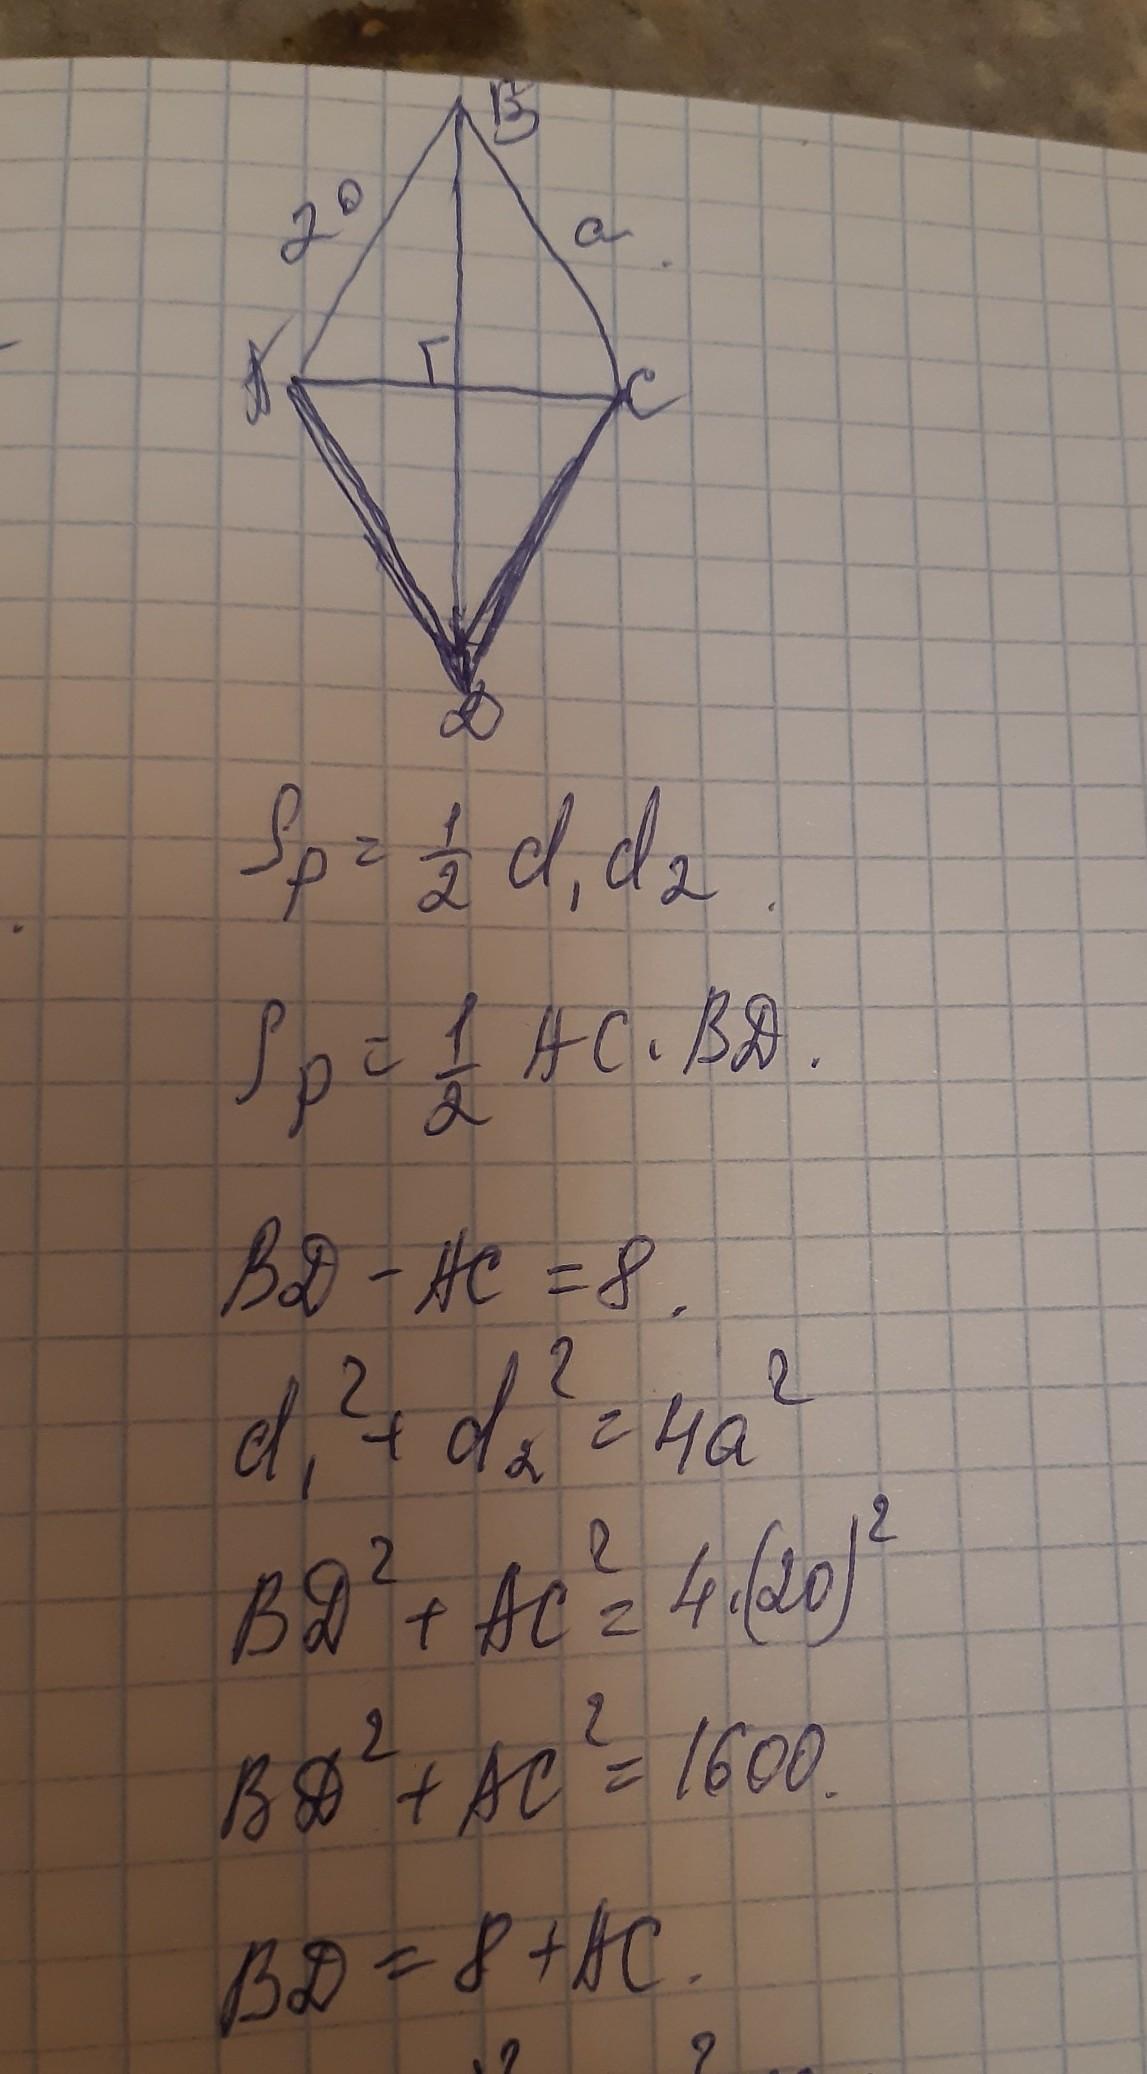 B
20
a
A
C
D
Sр = 1/2 d₁ d₂.
Sр = 1/2 AC · BD.
BD - AC = 8.
d₁² + d₂² = 4a²
BD² + AC² = 4·(20)²
BD² + AC² = 1600.
BD = 8 + AC.